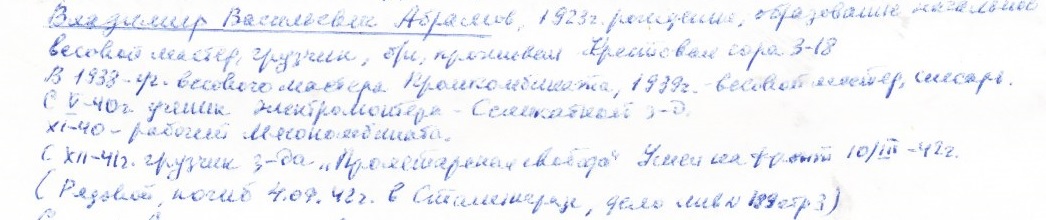 Владимир Васильевич Абрамов, 1923г. рождения, образование начальное
весовой мастер, грузчик, б/п, проживал Крестовая гора 3-18
В 1938 - уч. весового мастера Промкомбината, 1939г. - весовой мастер, слесарь.
С V-40г. ученик электромонтера - Силикатный з-д.
XI-40 - рабочий Мясокомбината.
С XII-41г. грузчик з-да „Пролетарская свобода" Ушел на фронт 10/III-42г.
(Рядовой, погиб 4.09.42г. в Сталинграде, дело 199 стр 3)